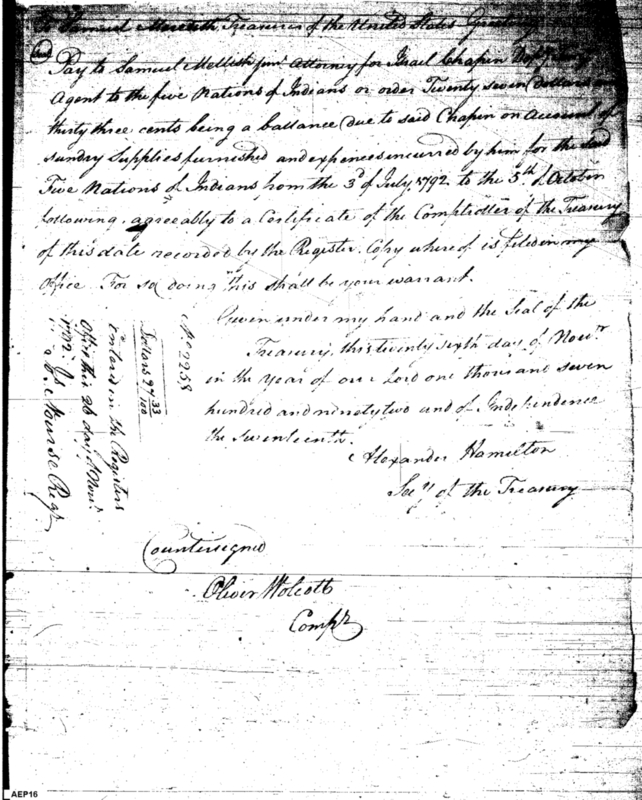 To Samuel Meredith Treasurer of the United States Greeting
Pay to Samuel Mellish junr. Attorney for Israel Chapin Depy
Agent to the five Nations of Indians or order Twenty seven dollars
thirty three cents being a ballance due to said Chapin on account of
sundry Supplies furnished and expences incurred by him for the said
Five Nations of Indians from the 3d of July, 1792 to the 5th of October
following, agreeably to a Certificate of the Comptroller of the Treasury
of this date recorded by the Register. Copy where of is filed in my
Office. For so doing this shall be your warrant.
Given under my hand and the Seal of the
Treasury, this twenty sixth day of Novr.
in the Year of our Lord one thousand seven
hundred and ninety two and of Independence
the Seventeenth.
Alexander Hamilton
Secy of the Treasury
No. 2258
Dollars 27 33/100
Entered in the Registers
Office this 26 day of Novr.
1792.
Nourse Regr
Countersigned
Oliver Wolcott
Compr
AEP16